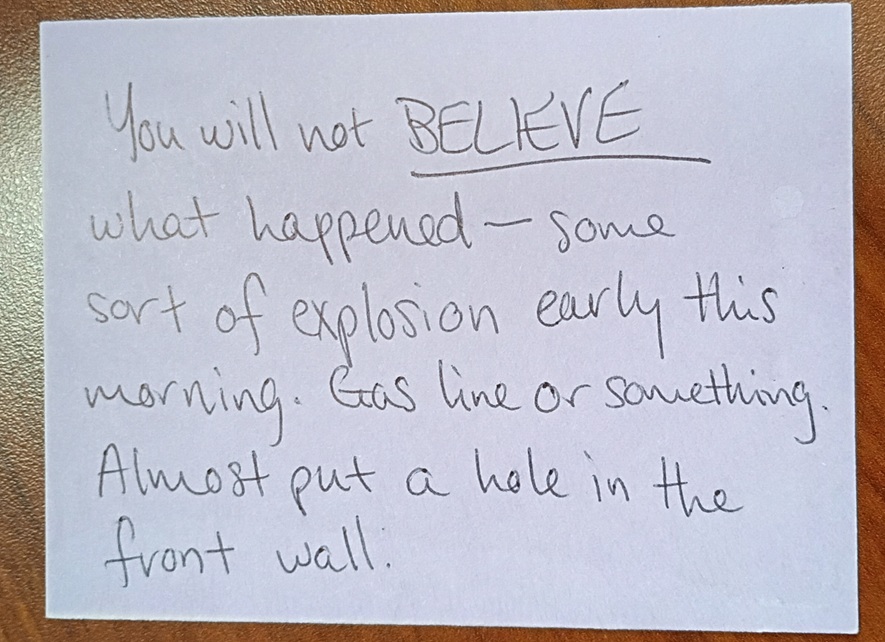 You will not BELIEVE
what happened – some
sort of explosion early this
morning. Gas line or something.
Almost put a hole in the
front wall.